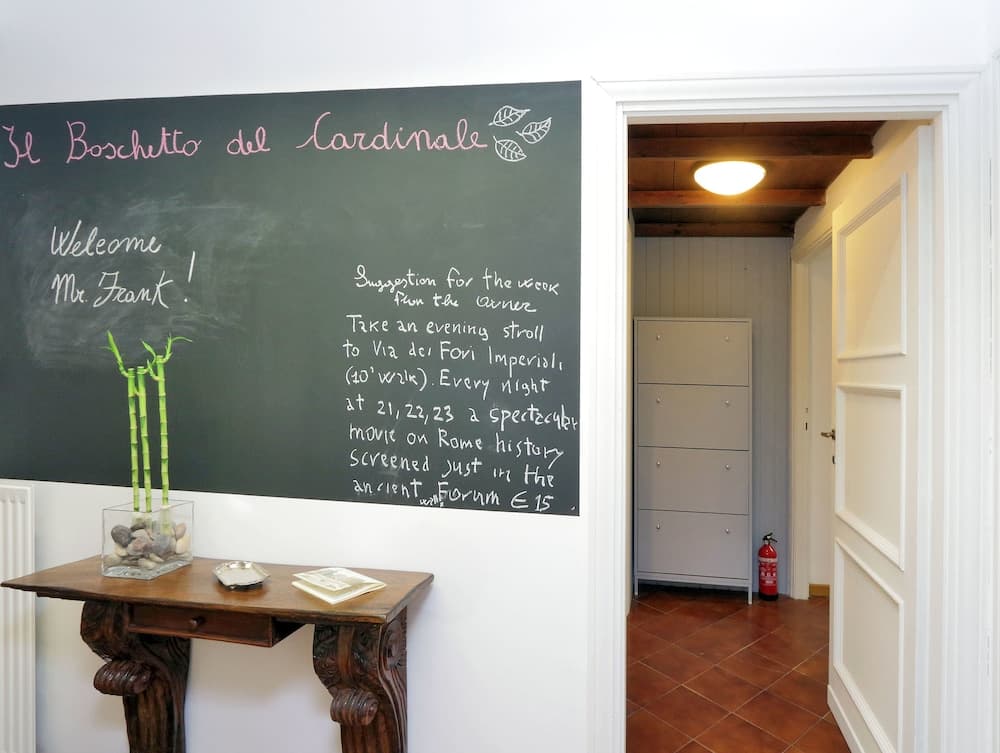 Il Boschetto del Cardinale
Welcome
Mr. Frank!
Suggestion for the week
from the owner
Take an evening stroll
to Via dei Fori Imperiali
(10' walk). Every night
at 21, 22, 23 a spectacular
movie on Rome history
screened just in the
ancient Forum € 15